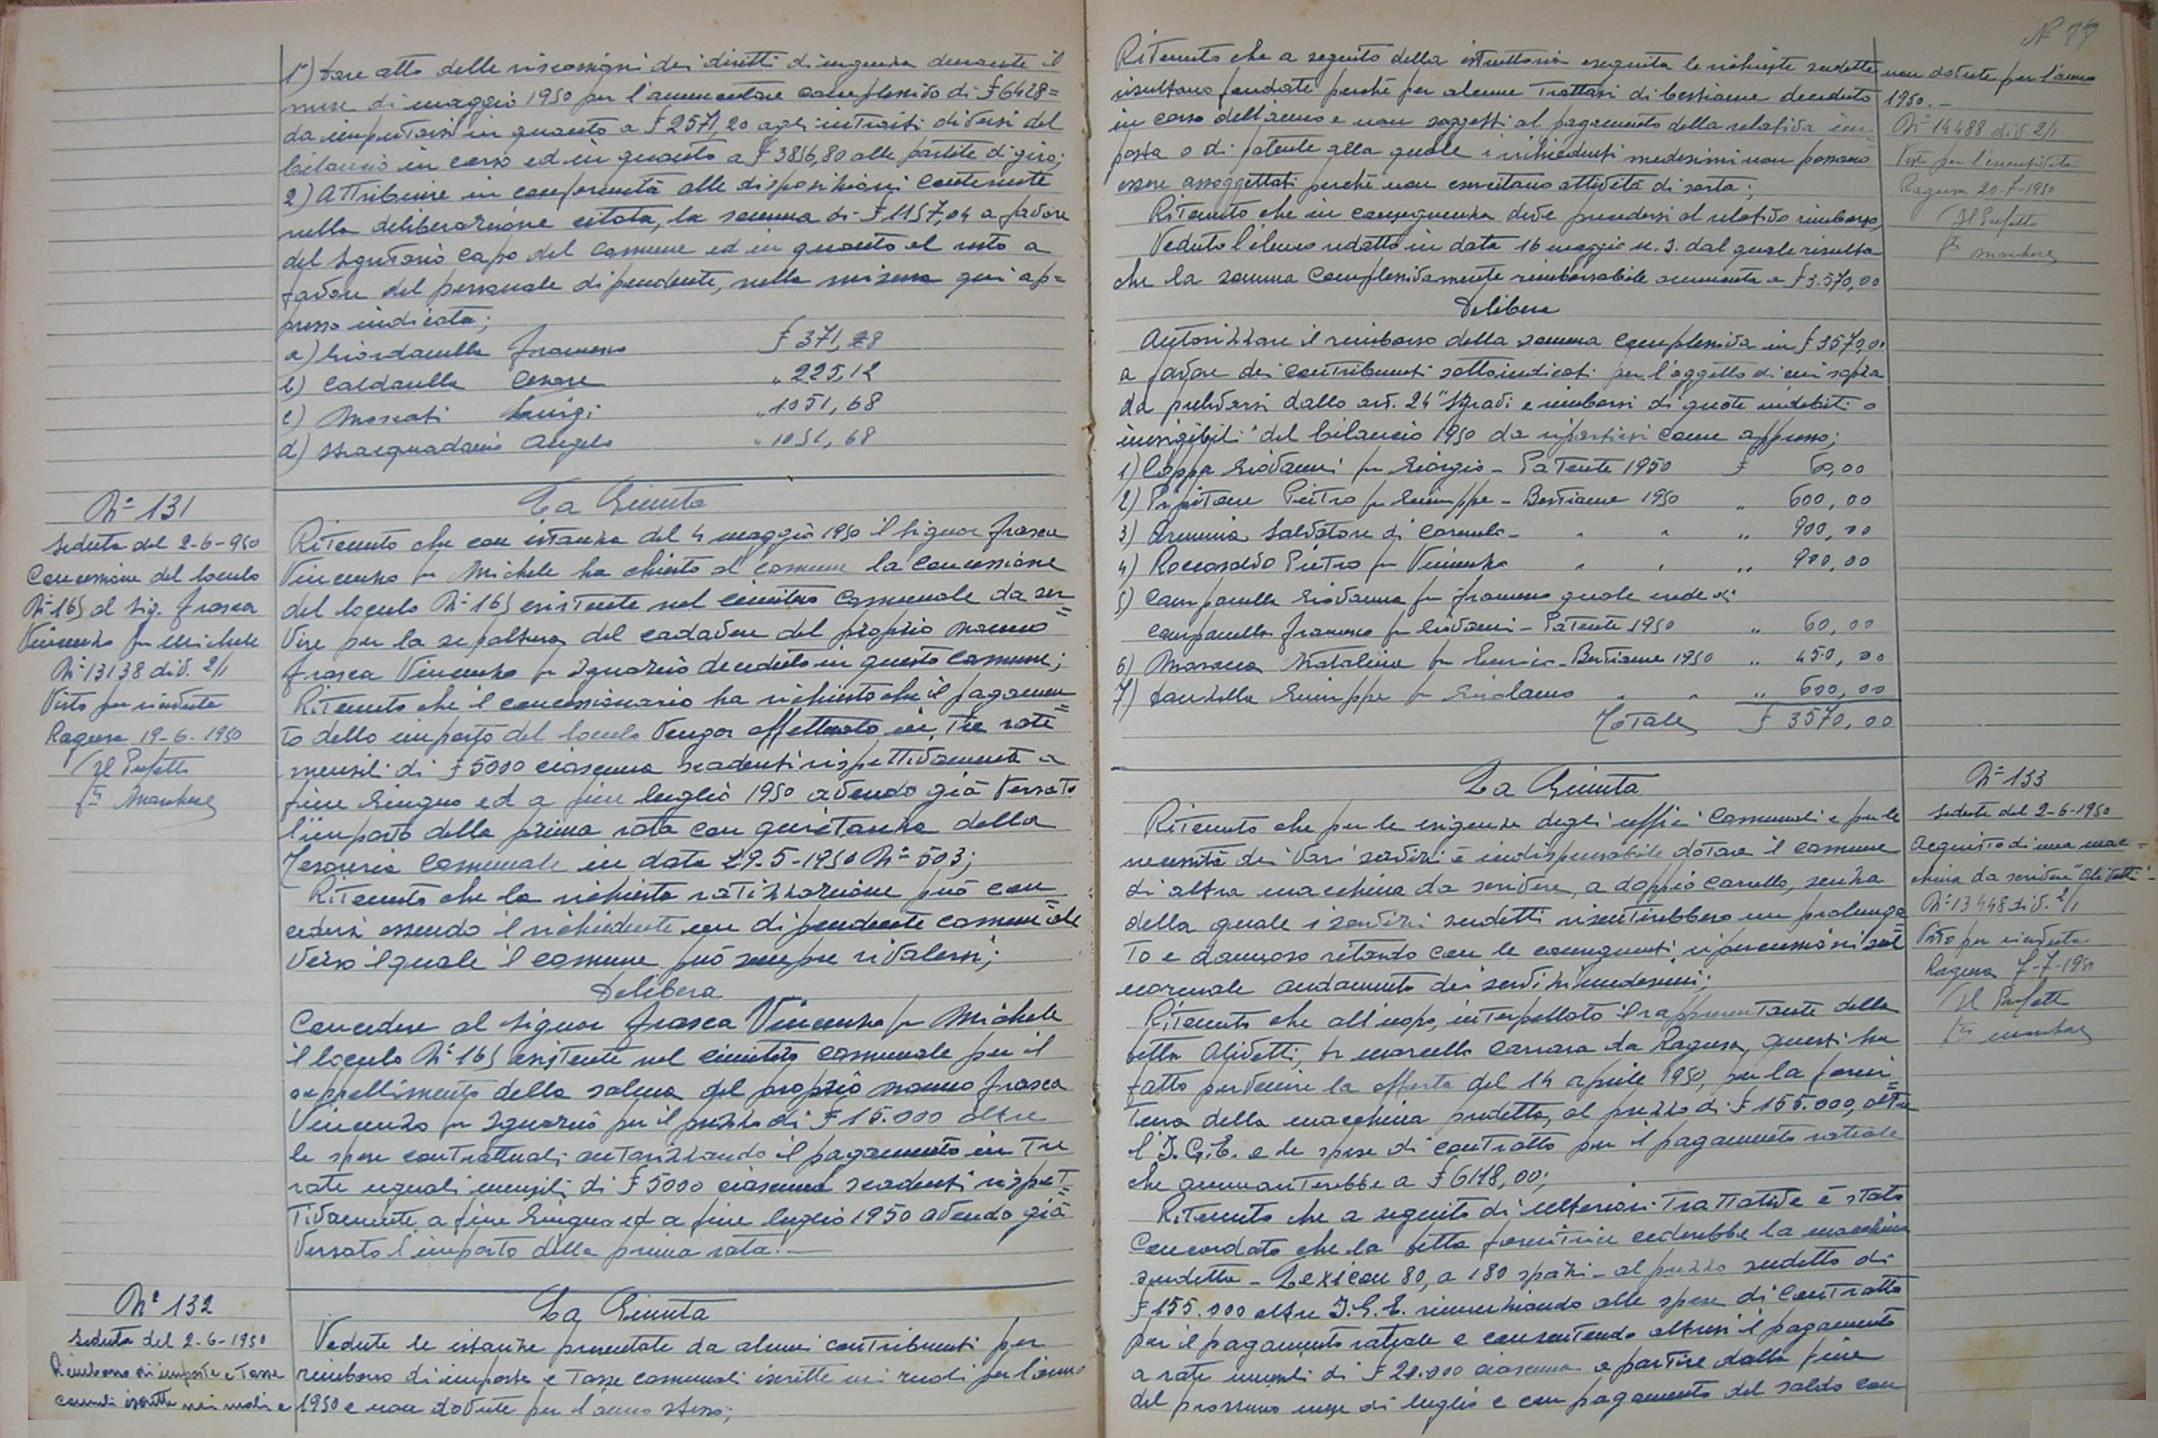 1°) Dare atto delle riscossioni dei diritti di urgenza durante il
mese di maggio 1950 per l'ammontare complessivo di £ 6428=
da imputarsi in quanto a £ 2571,20 agli introiti diversi del
bilancio in corso ed in quanto a £ 3856,80 alle partite di giro;
2) Attribuire in conformità alle disposizioni contenute
nella deliberazione citata, la somma di £ 1157,04 a favore
del Segretario Capo del Comune ed in quanto al resto a
favore del personale dipendente, nella misura qui ap=
presso indicata;
a) Giordanella Francesco £ 371,28
b) Caldarella Cesare " 225,12
c) Moscati Luigi " 1051,68
d) Stracquadanio Angelo " 1051,68
N° 131
Seduta del 2-6-950
Concessione del loculo
N° 165 al Sig. Frasca
Vincenzo fu Michele
N° 13138 div. 2/1
Visto per ricevuta
Ragusa 19-6-1950
Il Prefetto
La Giunta
Ritenuto che con istanza del 4 maggio 1950 il Signor Frasca
Vincenzo fu Michele ha chiesto al Comune la concessione
del loculo N° 165 esistente nel cimitero Comunale da ser=
vire per la sepoltura del cadavere del proprio nonno
Frasca Vincenzo fu Ignazio deceduto in questo Comune;
Ritenuto che il concessionario ha richiesto che il pagamen=
to dello importo del loculo venga effettuato in tre rate
mensili di £ 5000 ciascuna scadenti rispettivamente a
fine Giugno ed a fine luglio 1950 avendo già versato
l'importo della prima rata con quietanza della
Tesoreria Comunale in data 29-5-1950 N° 503;
Ritenuto che la richiesta ratizzazione può con=
cedersi essendo il richiedente un dipendente comunale
verso il quale il comune può sempre rivalersi;
Delibera
Concedere al Signor Frasca Vincenzo fu Michele
il loculo N° 165 esistente nel cimitero comunale per il
seppellimento della salma del proprio nonno Frasca
Vincenzo fu Ignazio per il prezzo di £ 15.000 oltre
le spese contrattuali autorizzando il pagamento in tre
rate uguali mensili di £ 5000 ciascuna scadenti rispet=
tivamente a fine Giugno ed a fine luglio 1950 avendo già
versato l'importo della prima rata.—
N° 132
Seduta del 2-6-1950
Rimborso di imposte e Tasse
comunali iscritte nei ruoli e
La Giunta
Vedute le istanze presentate da alcuni contribuenti per
rimborso di imposte e Tasse comunali iscritte nei ruoli per l'anno
1950 e non dovute per l'anno stesso;
N° 77
non dovute per l'anno
1950.—
N° 14488 div 2/1
Visto per l'esecutività
Ragusa 20-7-1950
Il Prefetto
Ritenuto che a seguito della istruttoria eseguita le richieste suddette
risultano fondate perché per alcune trattasi di bestiame deceduto
in corso dell'anno e non soggetti al pagamento della relativa im=
posta o di patente alla quale i richiedenti medesimi non possono
essere assoggettati perché non esercitano attività di sorta;
Ritenuto che in conseguenza deve procedersi al relativo rimborso,
Veduto l'elenco redatto in data 16 maggio u.s. dal quale risulta
che la somma complessivamente rimborsabile ammonta a £ 3.570,00
Delibera
Autorizzare il rimborso della somma complessiva in £ 3570,00
a favore dei contribuenti sottoindicati per l'oggetto di cui sopra
da prelevarsi dallo art. 24 "Sgravi e rimborsi di quote indebiti o
inesigibili" del bilancio 1950 da ripartirsi come appresso;
1) Coppa Giovanni fu Giorgio - Patente 1950 £ 60,00
2) Pietro fu Giuseppe - Bestiame 1950 " 600,00
3) Salvatore di Carmelo - " " " 900,00
4) Roccasalvo Pietro fu Vincenzo " " " 900,00
5) Campanella Giovanna fu Francesco quale erede di
Campanella Francesco fu Giovanni - Patente 1950 " 60,00
6) Natalina fu - Bestiame 1950 " 450,00
7) Giuseppe fu Girolamo " " " 600,00
Totale £ 3570,00
N° 133
Seduta del 2-6-1950
Acquisto di una mac=
china da scrivere "Olivetti"
N° 13448 div. 2/1
Visto per ricevuta
Ragusa 7-7-1950
Il Prefetto
La Giunta
Ritenuto che per le esigenze degli uffici Comunali e per le
necessità dei vari servizi è indispensabile dotare il comune
di altra macchina da scrivere, a doppio carrello, senza
della quale i servizi suddetti risentirebbero un prolunga=
to e dannoso ritardo con le conseguenti ripercussioni sul
normale andamento dei servizi medesimi;
Ritenuto che all'uopo, interpellato il rappresentante della
Ditta Olivetti, Sr Marcello Carrara da Ragusa, questi ha
fatto pervenire la offerta del 14 aprile 1950, per la forni=
tura della macchina predetta, al prezzo di £ 155.000, oltre
l'I.G.E. e le spese di contratto per il pagamento rateale
che ammonterebbe a £ 6118,00;
Ritenuto che a seguito di ulteriori trattative è stato
concordato che la Ditta fornitrice cederebbe la macchina
suddetta - Lexicon 80, a 180 spazi - al prezzo suddetto di
£ 155.000 oltre I.G.E. rinunziando alle spese di contratto
per il pagamento rateale e consentendo altresì il pagamento
a rate mensili di £ 20.000 ciascuna a partire dalla fine
del prossimo mese di luglio e con pagamento del saldo con